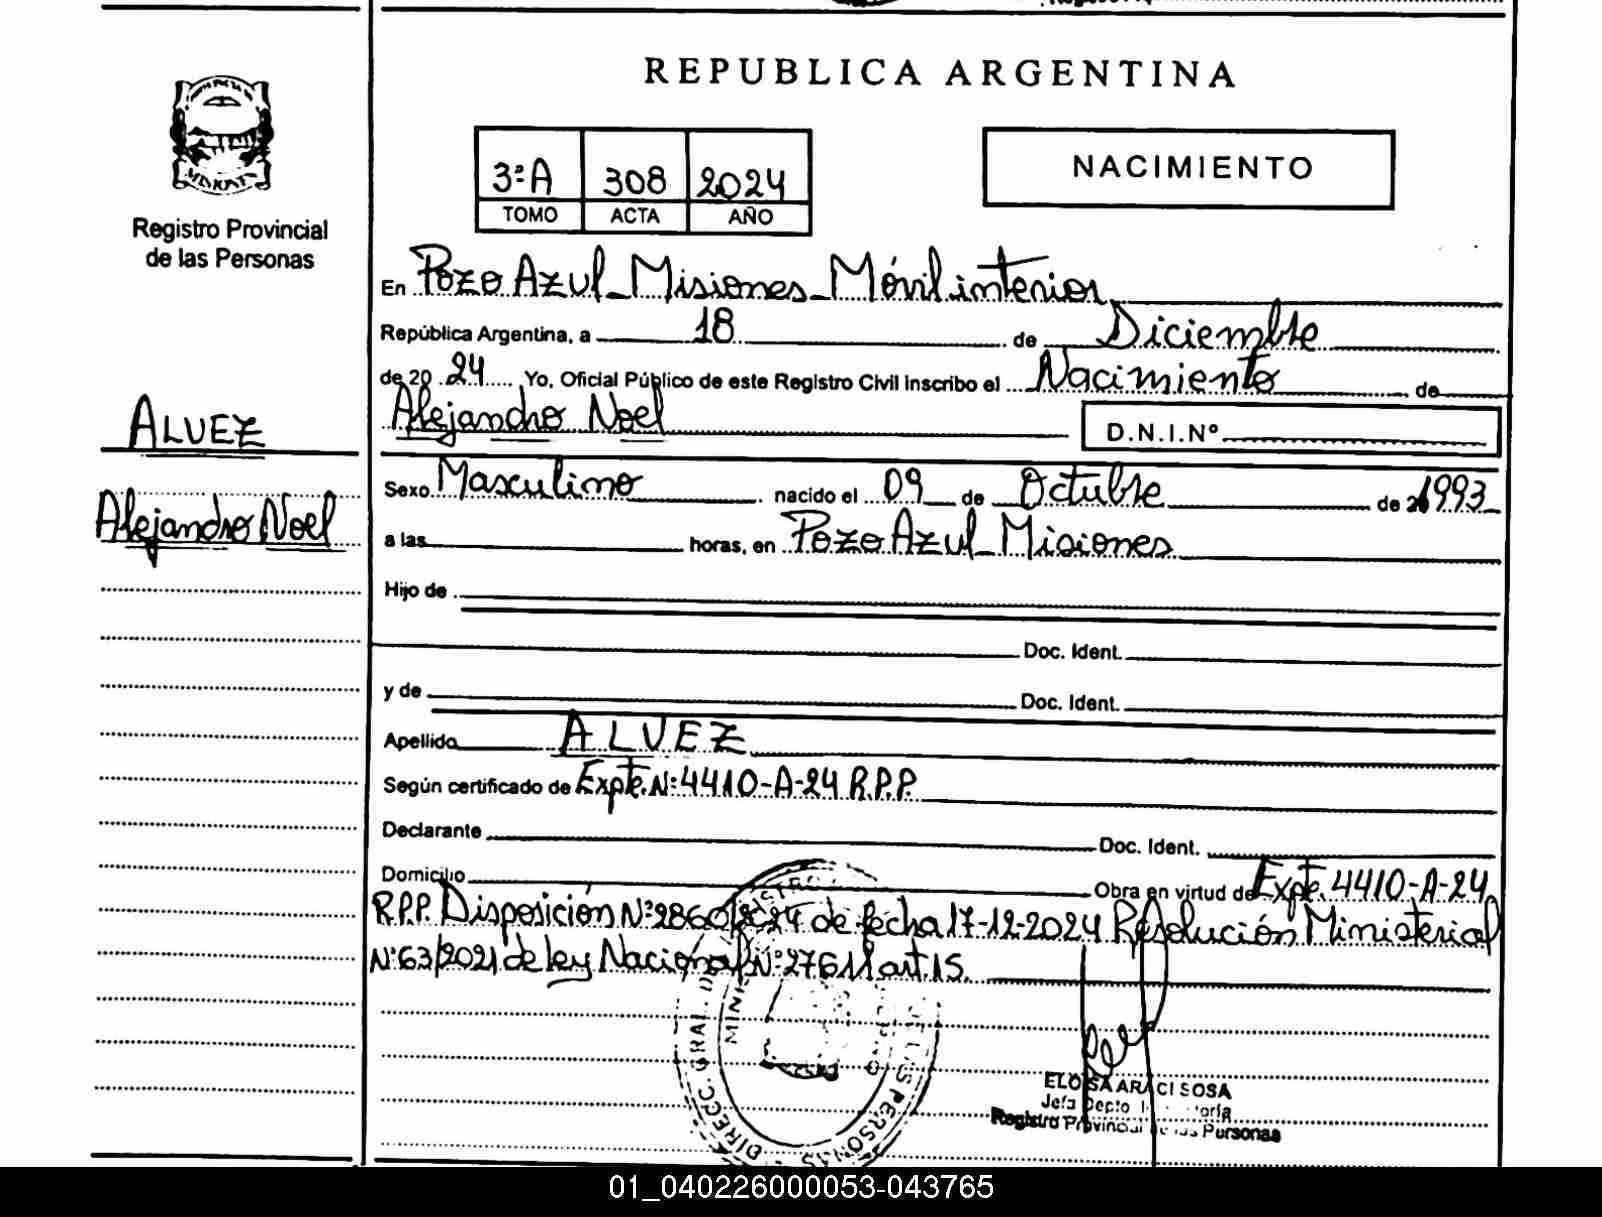 REPUBLICA ARGENTINA
MISIONES
Registro Provincial
de las Personas
3ºA 308 2024
TOMO ACTA AÑO
NACIMIENTO
En Pozo Azul_Misiones_Móvil interior
República Argentina, a 18 de Diciembre
de 20 24 Yo, Oficial Público de este Registro Civil inscribo el Nacimiento de
Alejandro Noel D.N.I.Nº
ALVEZ
Alejandro Noel
Sexo Masculino nacido el 09 de Octubre de 1993
a las horas, en Pozo Azul_Misiones
Hijo de
Doc. Ident.
y de Doc. Ident.
Apellido ALVEZ
Según certificado de Expte. Nº 4410-A-24 R.P.P.
Declarante Doc. Ident.
Domicilio Obra en virtud de Expte. 4410-A-24
R.P.P. Disposición Nº 2860/2024 de fecha 17-12-2024 Resolución Ministerial
Nº 63/2021 de ley Nacional Nº 27611 art. 15.
DIRECC. GRAL. DE LAS PERSONAS
ELOISA ARACI SOSA
Jefa Depto
Registro Provincial de las Personas
01_040226000053-043765